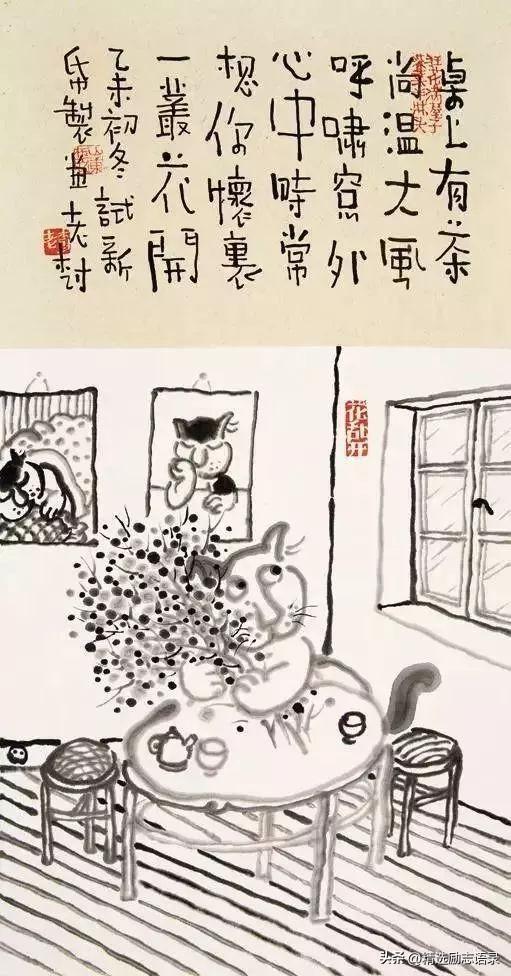 桌上有茶
尚温大风
呼嘯窓外
心中時常
想你懷裏
一叢花開
乙未初冬試新
帋製畫老树
花乱开
头条@精选励志语录